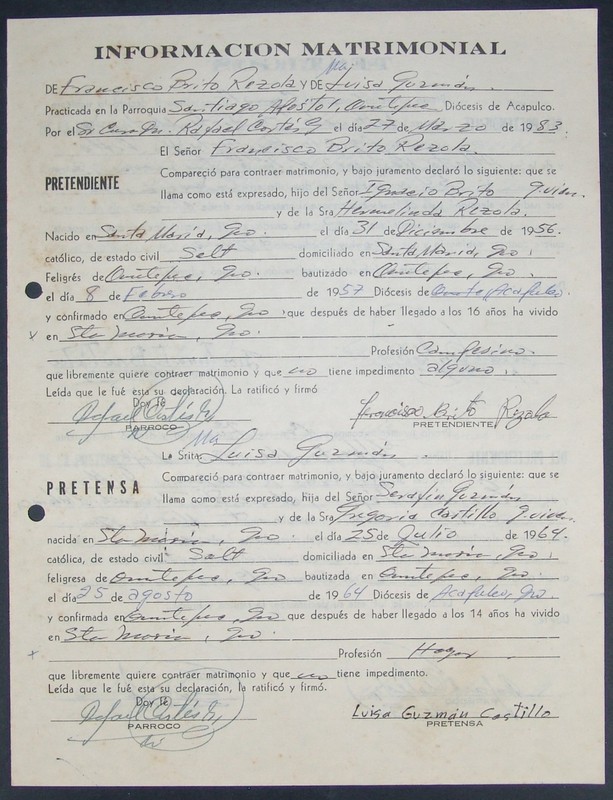 INFORMACION MATRIMONIAL
Ma.
DE Francisco Brito Rezola Y DE Luisa Guzmán.
Practicada en la Parroquia Santiago Apostol, Ometepec Diócesis de Acapulco.
Por el Sr Cura Dn. Rafael Cortés G el día 27 de Marzo de 1983.
El Señor Francisco Brito Rezola.
PRETENDIENTE
Compareció para contraer matrimonio, y bajo juramento declaró lo siguiente: que se
llama como está expresado, hijo del Señor Ignacio Brito q.vien.
y de la Sra Hermelinda Rezola.
Nacido en Santa María, Gro. el día 31 de Diciembre de 1956.
católico, de estado civil Solt domiciliado en Santa María, Gro.
Feligrés de Ometepec, Gro. bautizado en Ometepec, Gro.
el día 8 de Febrero de 1957 Diócesis de Acapulco.
y confirmado en Ometepec, Gro. que después de haber llegado a los 16 años ha vivido
x en Sta María, Gro.
Profesión Campesino.
que libremente quiere contraer matrimonio y que no tiene impedimento alguno.
Leída que le fué esta su declaración. La ratificó y firmó
Doy fé
Rafael Cortés G
PARROCO
Francisco Brito Rezola
PRETENDIENTE
Ma.
La Srita. Luisa Guzmán.
PRETENSA
Compareció para contraer matrimonio, y bajo juramento declaró lo siguiente: que se
llama como está expresado, hija del Señor Serafín Guzmán
y de la Sra Gregoria Castillo q.vien.
nacida en Sta María, Gro el día 25 de Julio de 1964.
católica, de estado civil Solt domiciliada en Sta María, Gro.
feligresa de Ometepec, Gro bautizada en Ometepec, Gro.
el día 25 de agosto de 1964 Diócesis de Acapulco, Gro.
y confirmada en Ometepec, Gro que después de haber llegado a los 14 años ha vivido
en Sta María, Gro.
x Profesión Hogar
que libremente quiere contraer matrimonio y que no tiene impedimento.
Leída que le fué esta su declaración, la ratificó y firmó.
Doy fé
Rafael Cortés G
PARROCO
Luisa Guzmán Castillo
PRETENSA